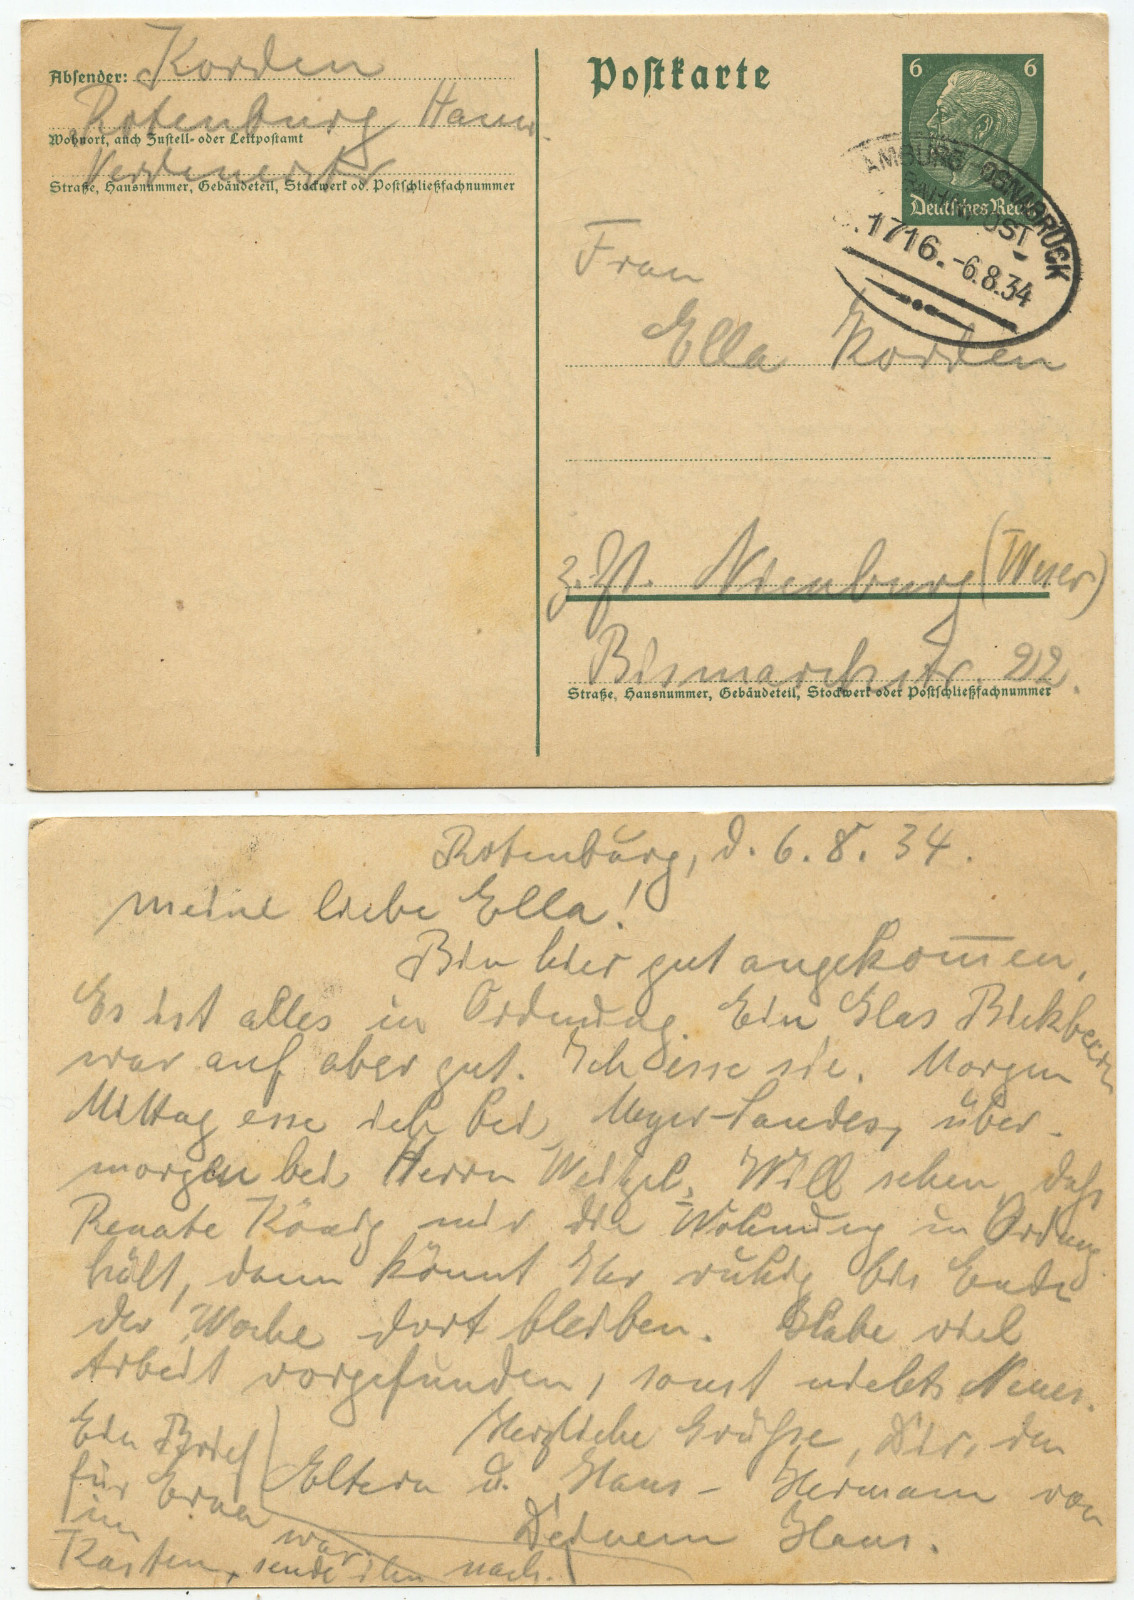 Absender: Korden
Rotenburg Hann.
Wohnort, auch Zustell- oder Leitpostamt
Verdenerstr
Straße, Hausnummer, Gebäudeteil, Stockwerk od. Postschließfachnummer
Postkarte
6 6
Deutsches Reich
AMBURG - OSNABRÜCK
BAHNPOST
1716. -6.8.34
Frau
Ella Korden
z. Zt. Nienburg (Weser)
Bismarckstr. 22.
Straße, Hausnummer, Gebäudeteil, Stockwerk oder Postschließfachnummer
Rotenburg, d. 6. 8. 34.
Meine liebe Ella!
Bin hier gut angekom̅en.
Es ist alles in Ordnung. Ein Glas Bickbeeren
war auf aber gut. Ich esse sie. Morgen
Mittag esse ich bei Meyer-Landes, über-
morgen bei Herrn Weitzel. Will sehen, daß
Renate König mir die Wohnung in Ordnung
hält, dann könnt Ihr ruhig bis Ende
der Woche dort bleiben. Habe viel
Arbeit vorgefunden, sonst nichts Neues.
Herzliche Grüße, Dir, den
Eltern u. Hans-Hermann von
Deinem Hans.
Ein Brief
für Erna
im
Kasten, war
sende ihn nach.